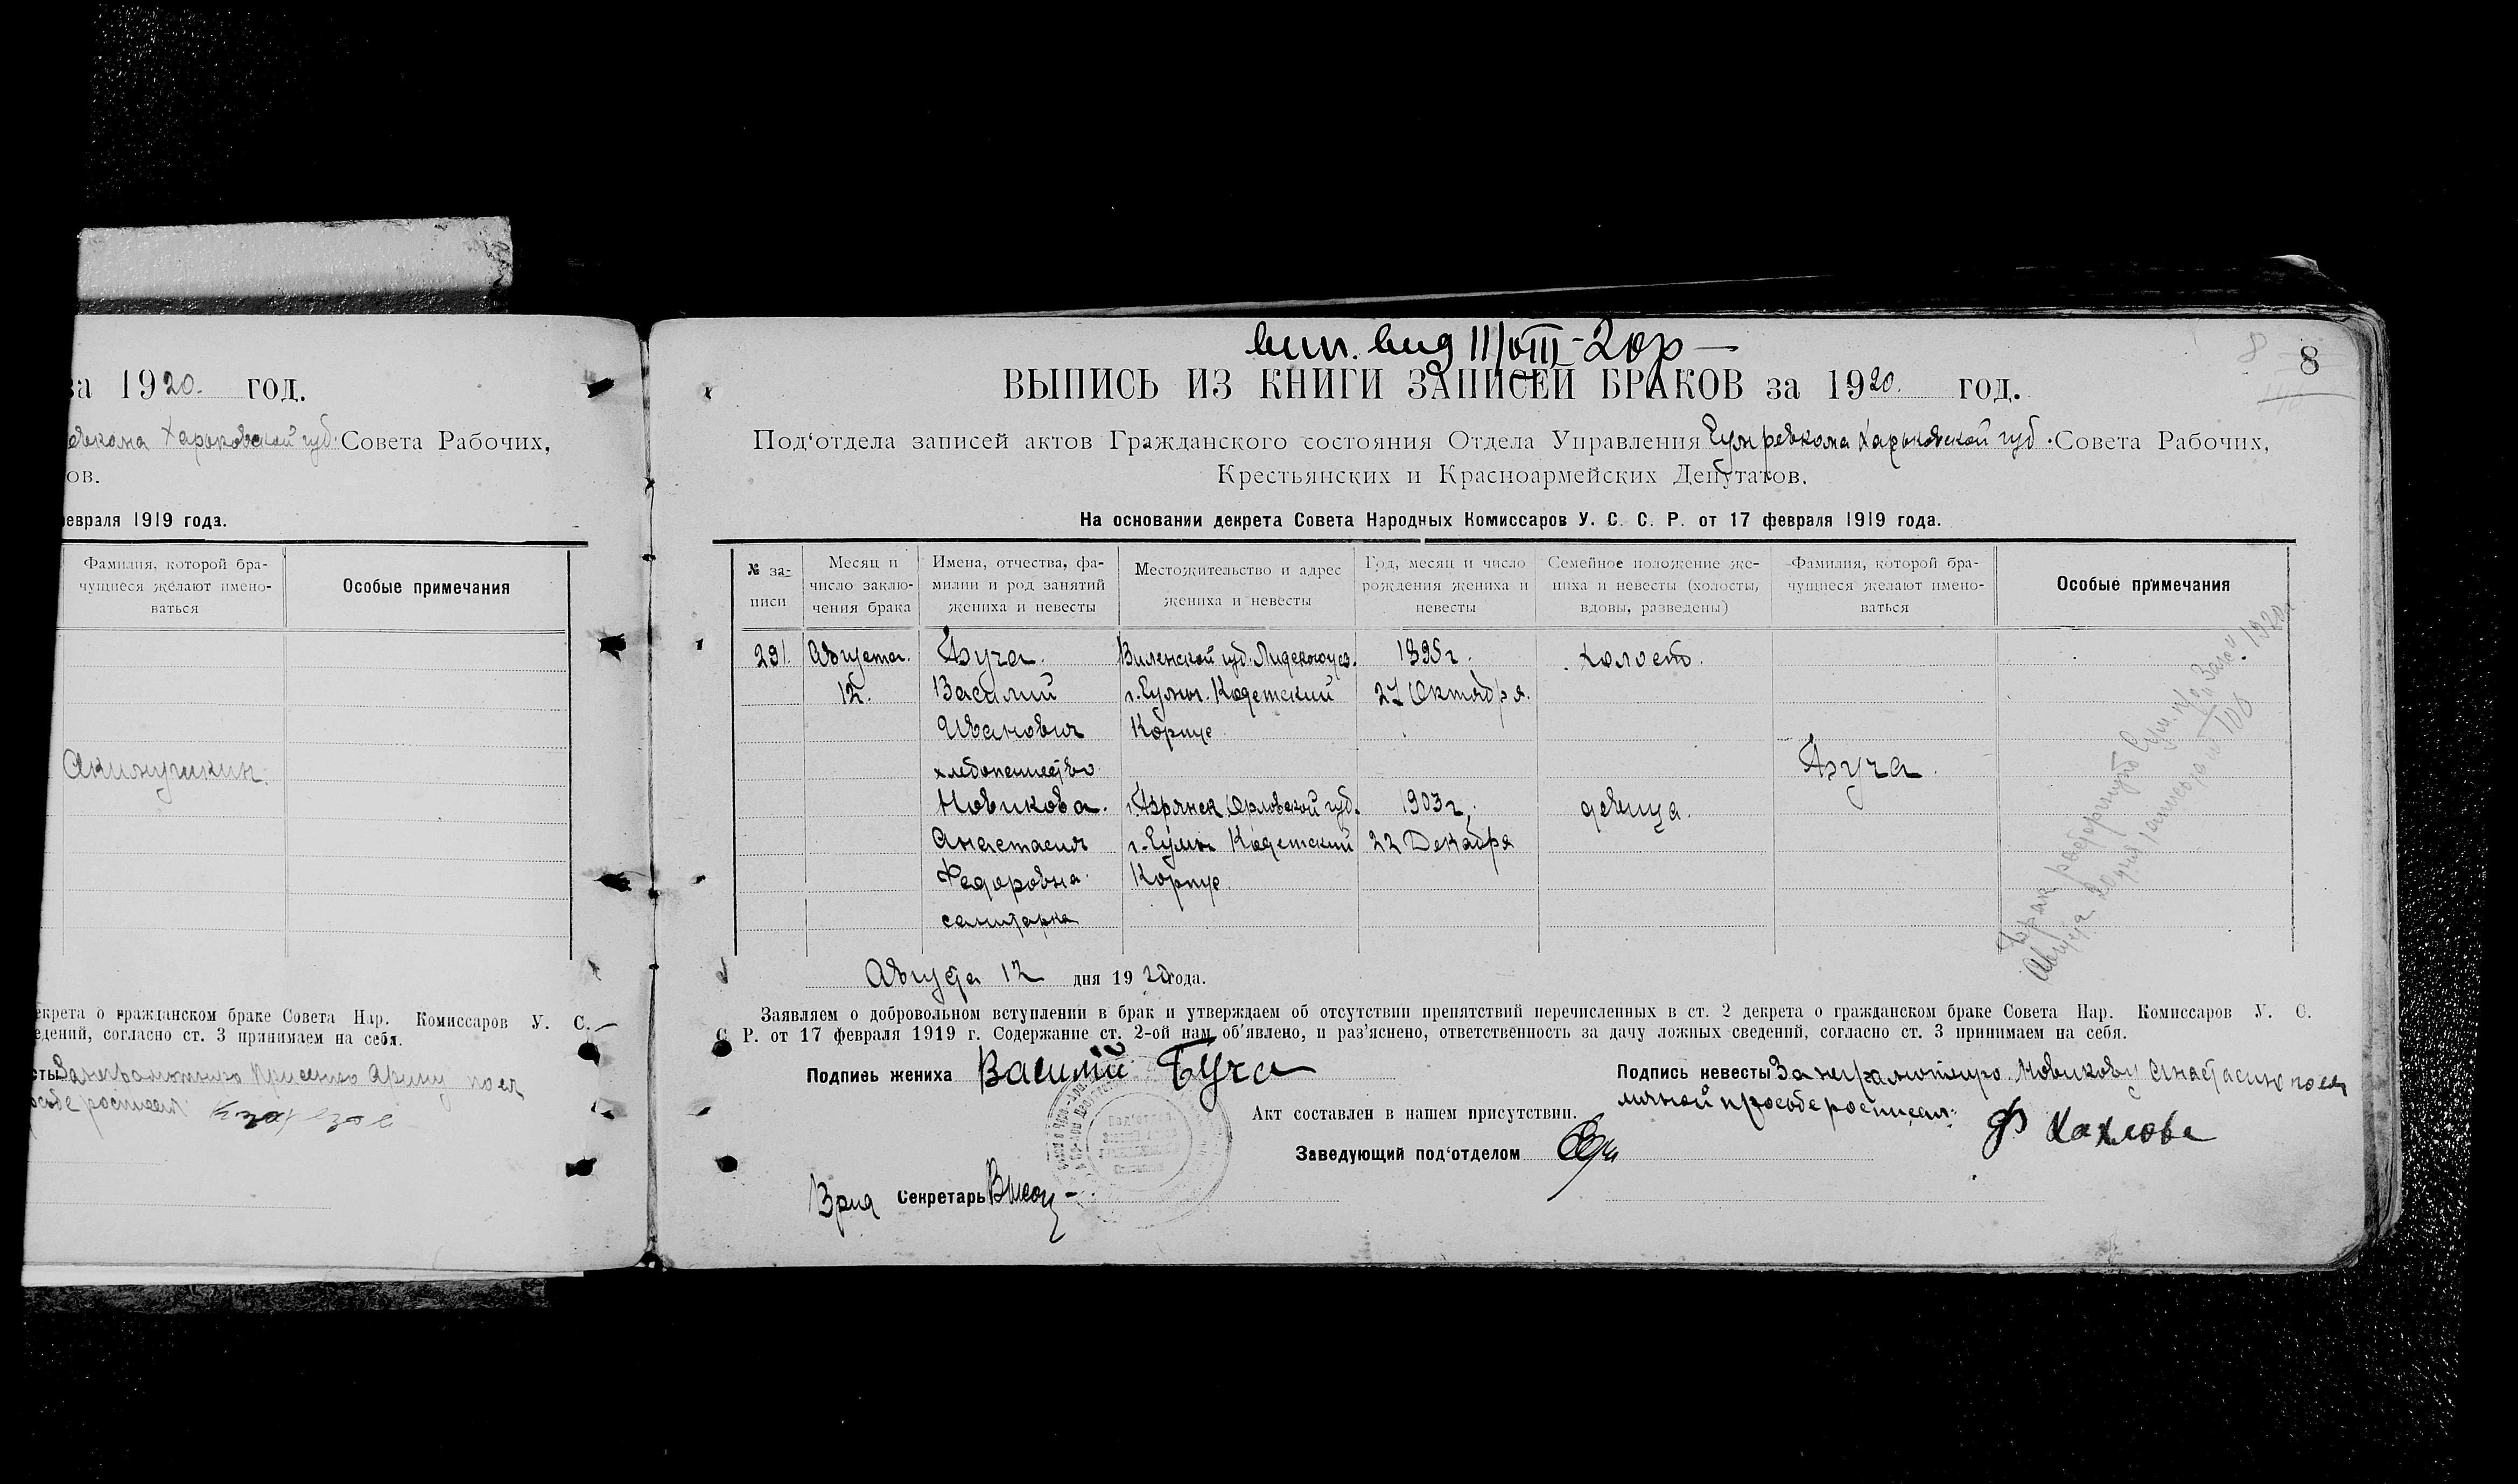 за 1920. год.
Харьковской губ. Совета Рабочих,
ов.
февраля 1919 года.
Фамилия, которой бра-
чущиеся желают имено-
ваться
Особые примечания
Акинушкин.
екрета о гражданском браке Совета Нар. Комиссаров У. С.
едений, согласно ст. 3 принимаем на себя.
11/VIII-20р
8
8
ВЫПИСЬ ИЗ КНИГИ ЗАПИСЕЙ БРАКОВ за 1920. год.
Под'отдела записей актов Гражданского состояния Отдела Управления Сумревкома Харьковской губ. Совета Рабочих,
Крестьянских и Красноармейских Депутатов.
На основании декрета Совета Народных Комиссаров У. С. С. Р. от 17 февраля 1919 года.
№ за-
писи
Месяц и
число заклю-
чения брака
Имена, отчества, фа-
милии и род занятий
жениха и невесты
Местожительство и адрес
жениха и невесты
Год, месяц и число
рождения жениха и
невесты
Семейное положение же-
ниха и невесты (холосты,
вдовы, разведены)
Фамилия, которой бра-
чущиеся желают имено-
ваться
Особые примечания
291. Августа. Буча. Виленской губ. Лидского уез. 1895 г. холост.
12. Василий г. Сумы. Кадетский 27 Октября.
Иванович Корпус
хлебопашество Буча.
Новикова. г. Брянск Орловской губ. 1903 г. девица.
Анастасия г. Сумы Кадетский 22 Декабря
Федоровна Корпус.
санитарка
Брак расторгнут
Августа 12 дня 1920 года.
Заявляем о добровольном вступлении в брак и утверждаем об отсутствии препятствий перечисленных в ст. 2 декрета о гражданском браке Совета Нар. Комиссаров У. С.
С. Р. от 17 февраля 1919 г. Содержание ст. 2-ой нам об'явлено, и раз'яснено, ответственность за дачу ложных сведений, согласно ст. 3 принимаем на себя.
Подпись жениха Василий Буча
Подпись невесты За неграмотную Новикову Анастасию по ея
личной просьбе росписался:
Акт составлен в нашем присутствии.
Заведующий под'отделом
Врид Секретарь